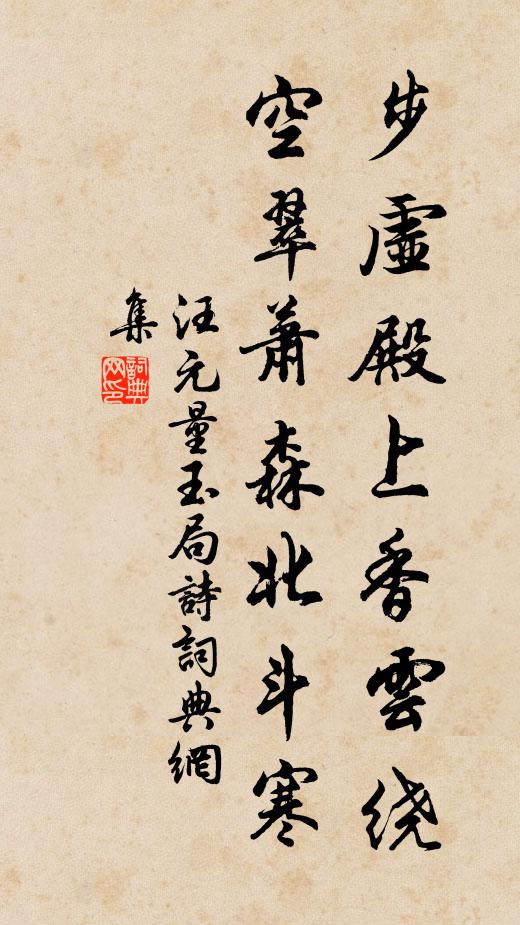 步虛殿上香雲绕
空翠蕭森北斗寒
汪元量玉局詩詞典網
集
詞典
网印